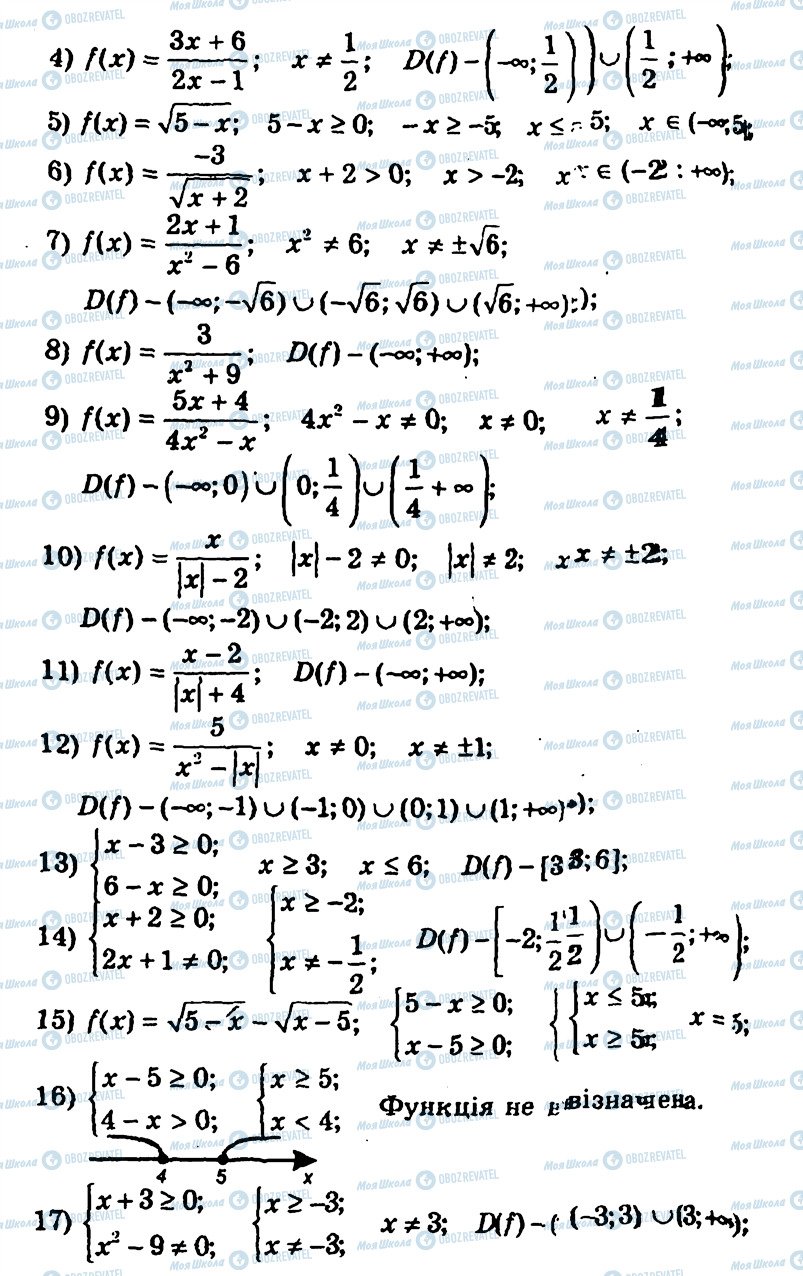 4) f(x) = (3x + 6)/(2x − 1); x ≠ 1/2; D(f) − (−∞; 1/2) ∪ (1/2; +∞);
5) f(x) = √(5 − x); 5 − x ≥ 0; −x ≥ −5; x ≤ 5; x ∈ (−∞; 5);
6) f(x) = −3/√(x + 2); x + 2 > 0; x > −2; x ∈ (−2 : +∞);
7) f(x) = (2x + 1)/(x² − 6); x² ≠ 6; x ≠ ±√6;
D(f) − (−∞; −√6) ∪ (−√6; √6) ∪ (√6; +∞);
8) f(x) = 3/(x² + 9); D(f) − (−∞; +∞);
9) f(x) = (5x + 4)/(4x² − x); 4x² − x ≠ 0; x ≠ 0; x ≠ 1/4;
D(f) − (−∞; 0) ∪ (0; 1/4) ∪ (1/4 + ∞);
10) f(x) = x/(|x| − 2); |x| − 2 ≠ 0; |x| ≠ 2; x ≠ ±2;
D(f) − (−∞; −2) ∪ (−2; 2) ∪ (2; +∞);
11) f(x) = (x − 2)/(|x| + 4); D(f) − (−∞; +∞);
12) f(x) = 5/(x² − |x|); x ≠ 0; x ≠ ±1;
D(f) − (−∞; −1) ∪ (−1; 0) ∪ (0; 1) ∪ (1; +∞);
13) { x − 3 ≥ 0; 6 − x ≥ 0; x ≥ 3; x ≤ 6; D(f) − [3; 6];
14) { x + 2 ≥ 0; 2x + 1 ≠ 0; { x ≥ −2; x ≠ −1/2; D(f) − [−2; 1/2) ∪ (−1/2; +∞);
15) f(x) = √(5 − x) − √(x − 5); { 5 − x ≥ 0; x − 5 ≥ 0; { x ≤ 5; x ≥ 5; x = 5;
16) { x − 5 ≥ 0; 4 − x > 0; { x ≥ 5; x < 4; Функція не візначена.
4 5 x
17) { x + 3 ≥ 0; x² − 9 ≠ 0; { x ≥ −3; x ≠ −3; x ≠ 3; D(f) − (−3; 3) ∪ (3; +∞);